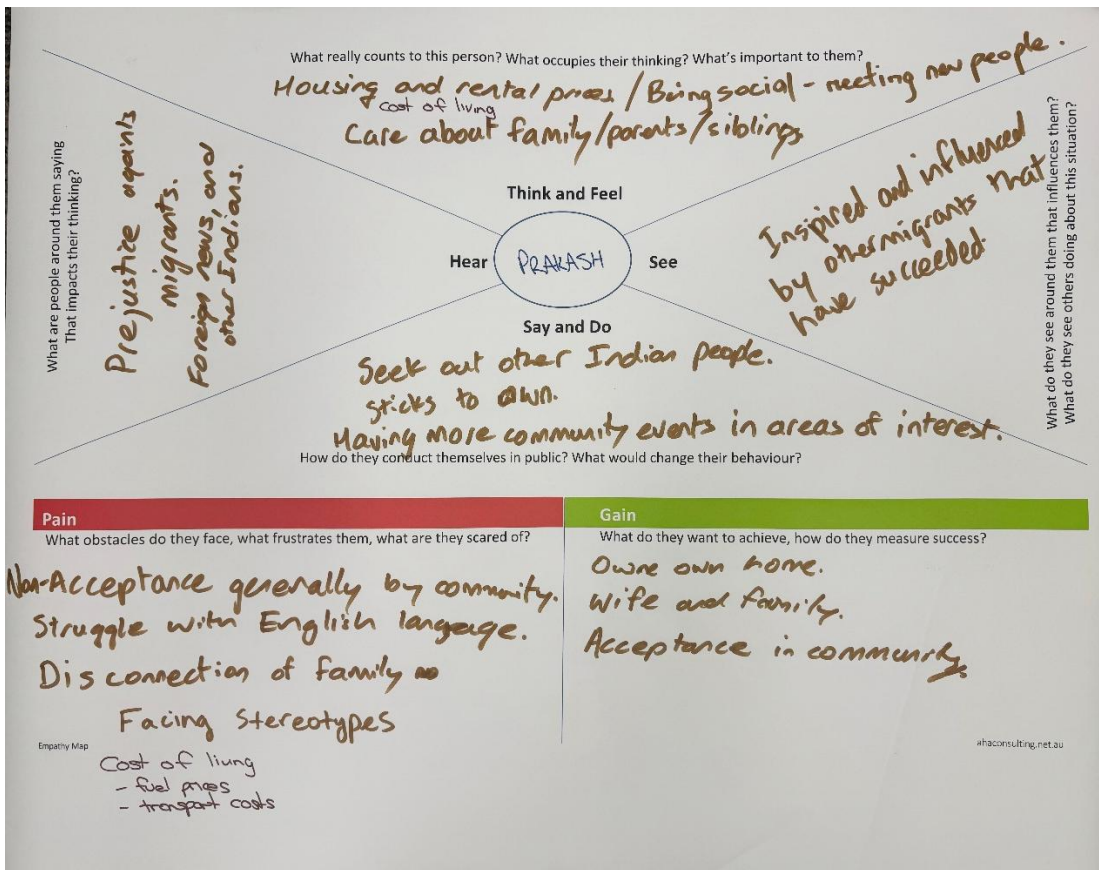 What really counts to this person? What occupies their thinking? What's important to them?
Housing and rental prices / Being social - meeting new people.
cost of living
Care about family/parents/siblings
Think and Feel
What are people around them saying
That impacts their thinking?
Prejustice againts
migrants.
Foreign news, and
other Indians.
Hear
PRAKASH
See
Inspired and influenced
by other migrants that
have succeeded.
What do they see around them that influences them?
What do they see others doing about this situation?
Say and Do
Seek out other Indian people.
sticks to own.
Having more community events in areas of interest.
How do they conduct themselves in public? What would change their behaviour?
Pain
What obstacles do they face, what frustrates them, what are they scared of?
Non-Acceptance generally by community.
Struggle with English langeage.
Disconnection of family
Facing Stereotypes
Empathy Map
Cost of living
- fuel prices
- transport costs
Gain
What do they want to achieve, how do they measure success?
Owne own home.
Wife and family.
Acceptance in community.
ahaconsulting.net.au